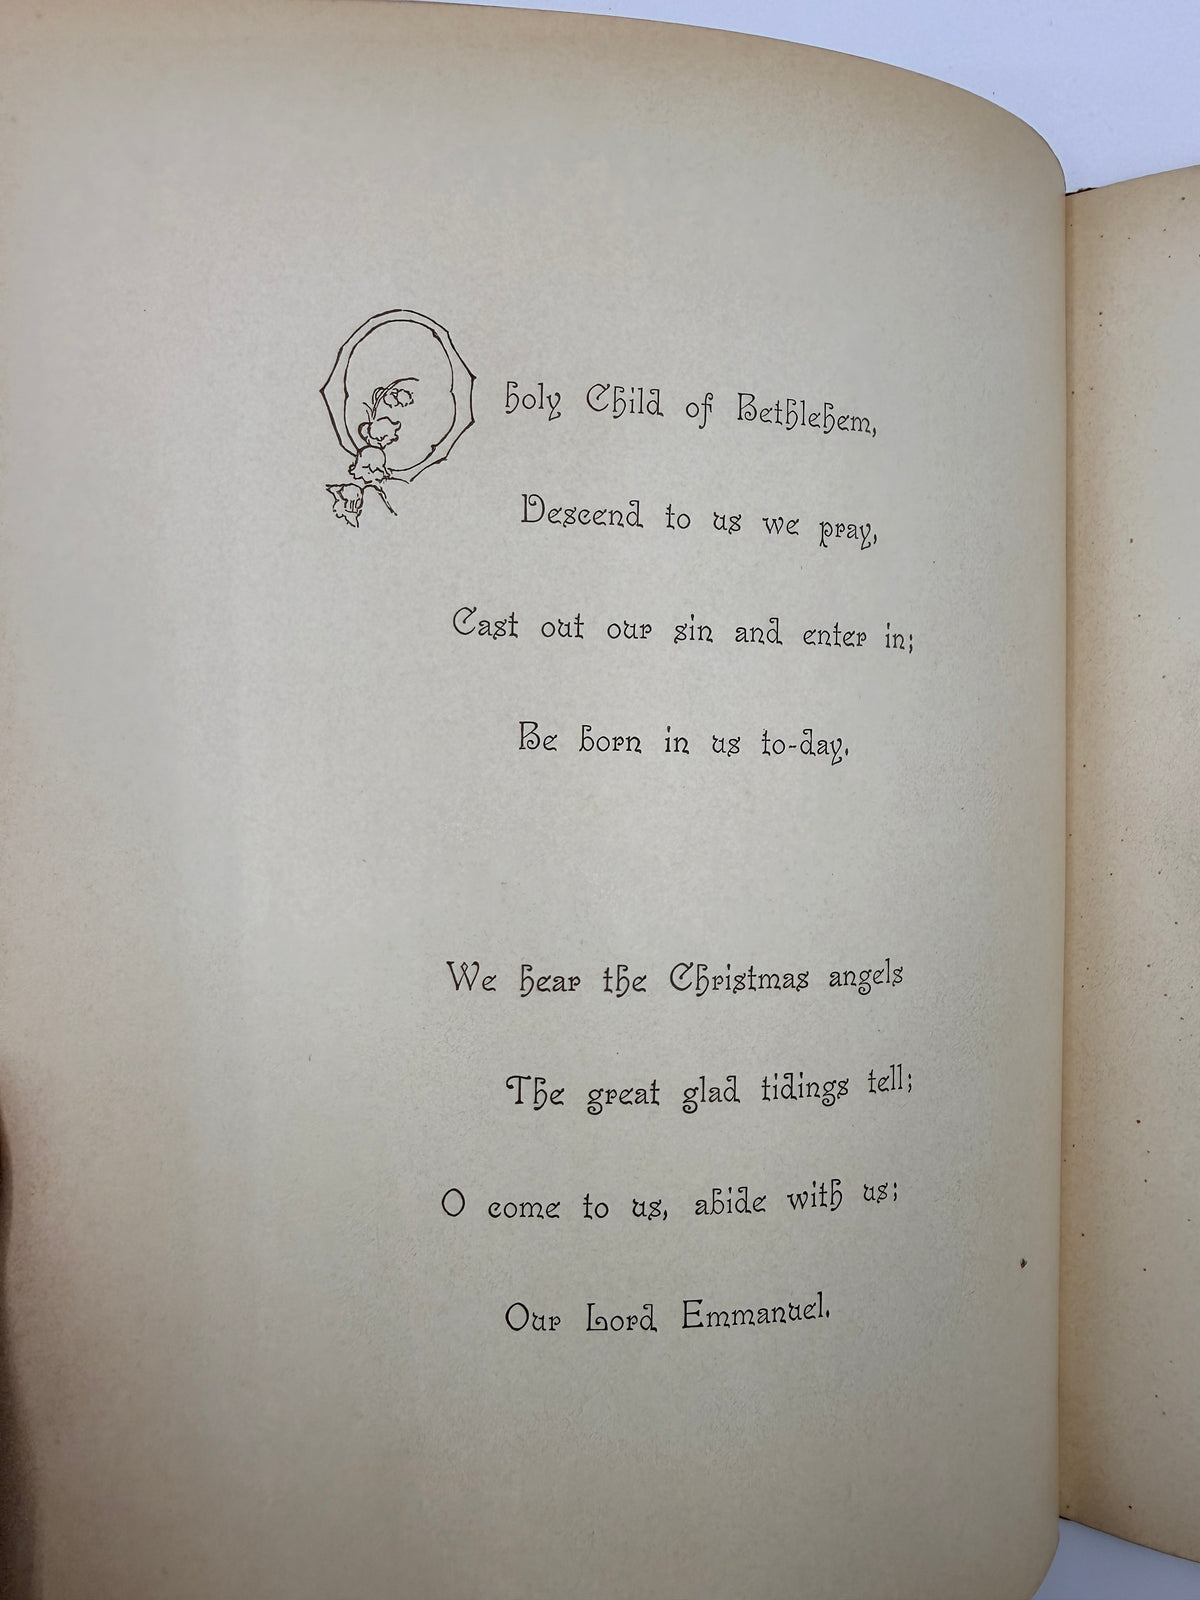 O holy Child of Bethlehem,
Descend to us we pray,
Cast out our sin and enter in;
Be born in us to-day.
We hear the Christmas angels
The great glad tidings tell;
O come to us, abide with us;
Our Lord Emmanuel.